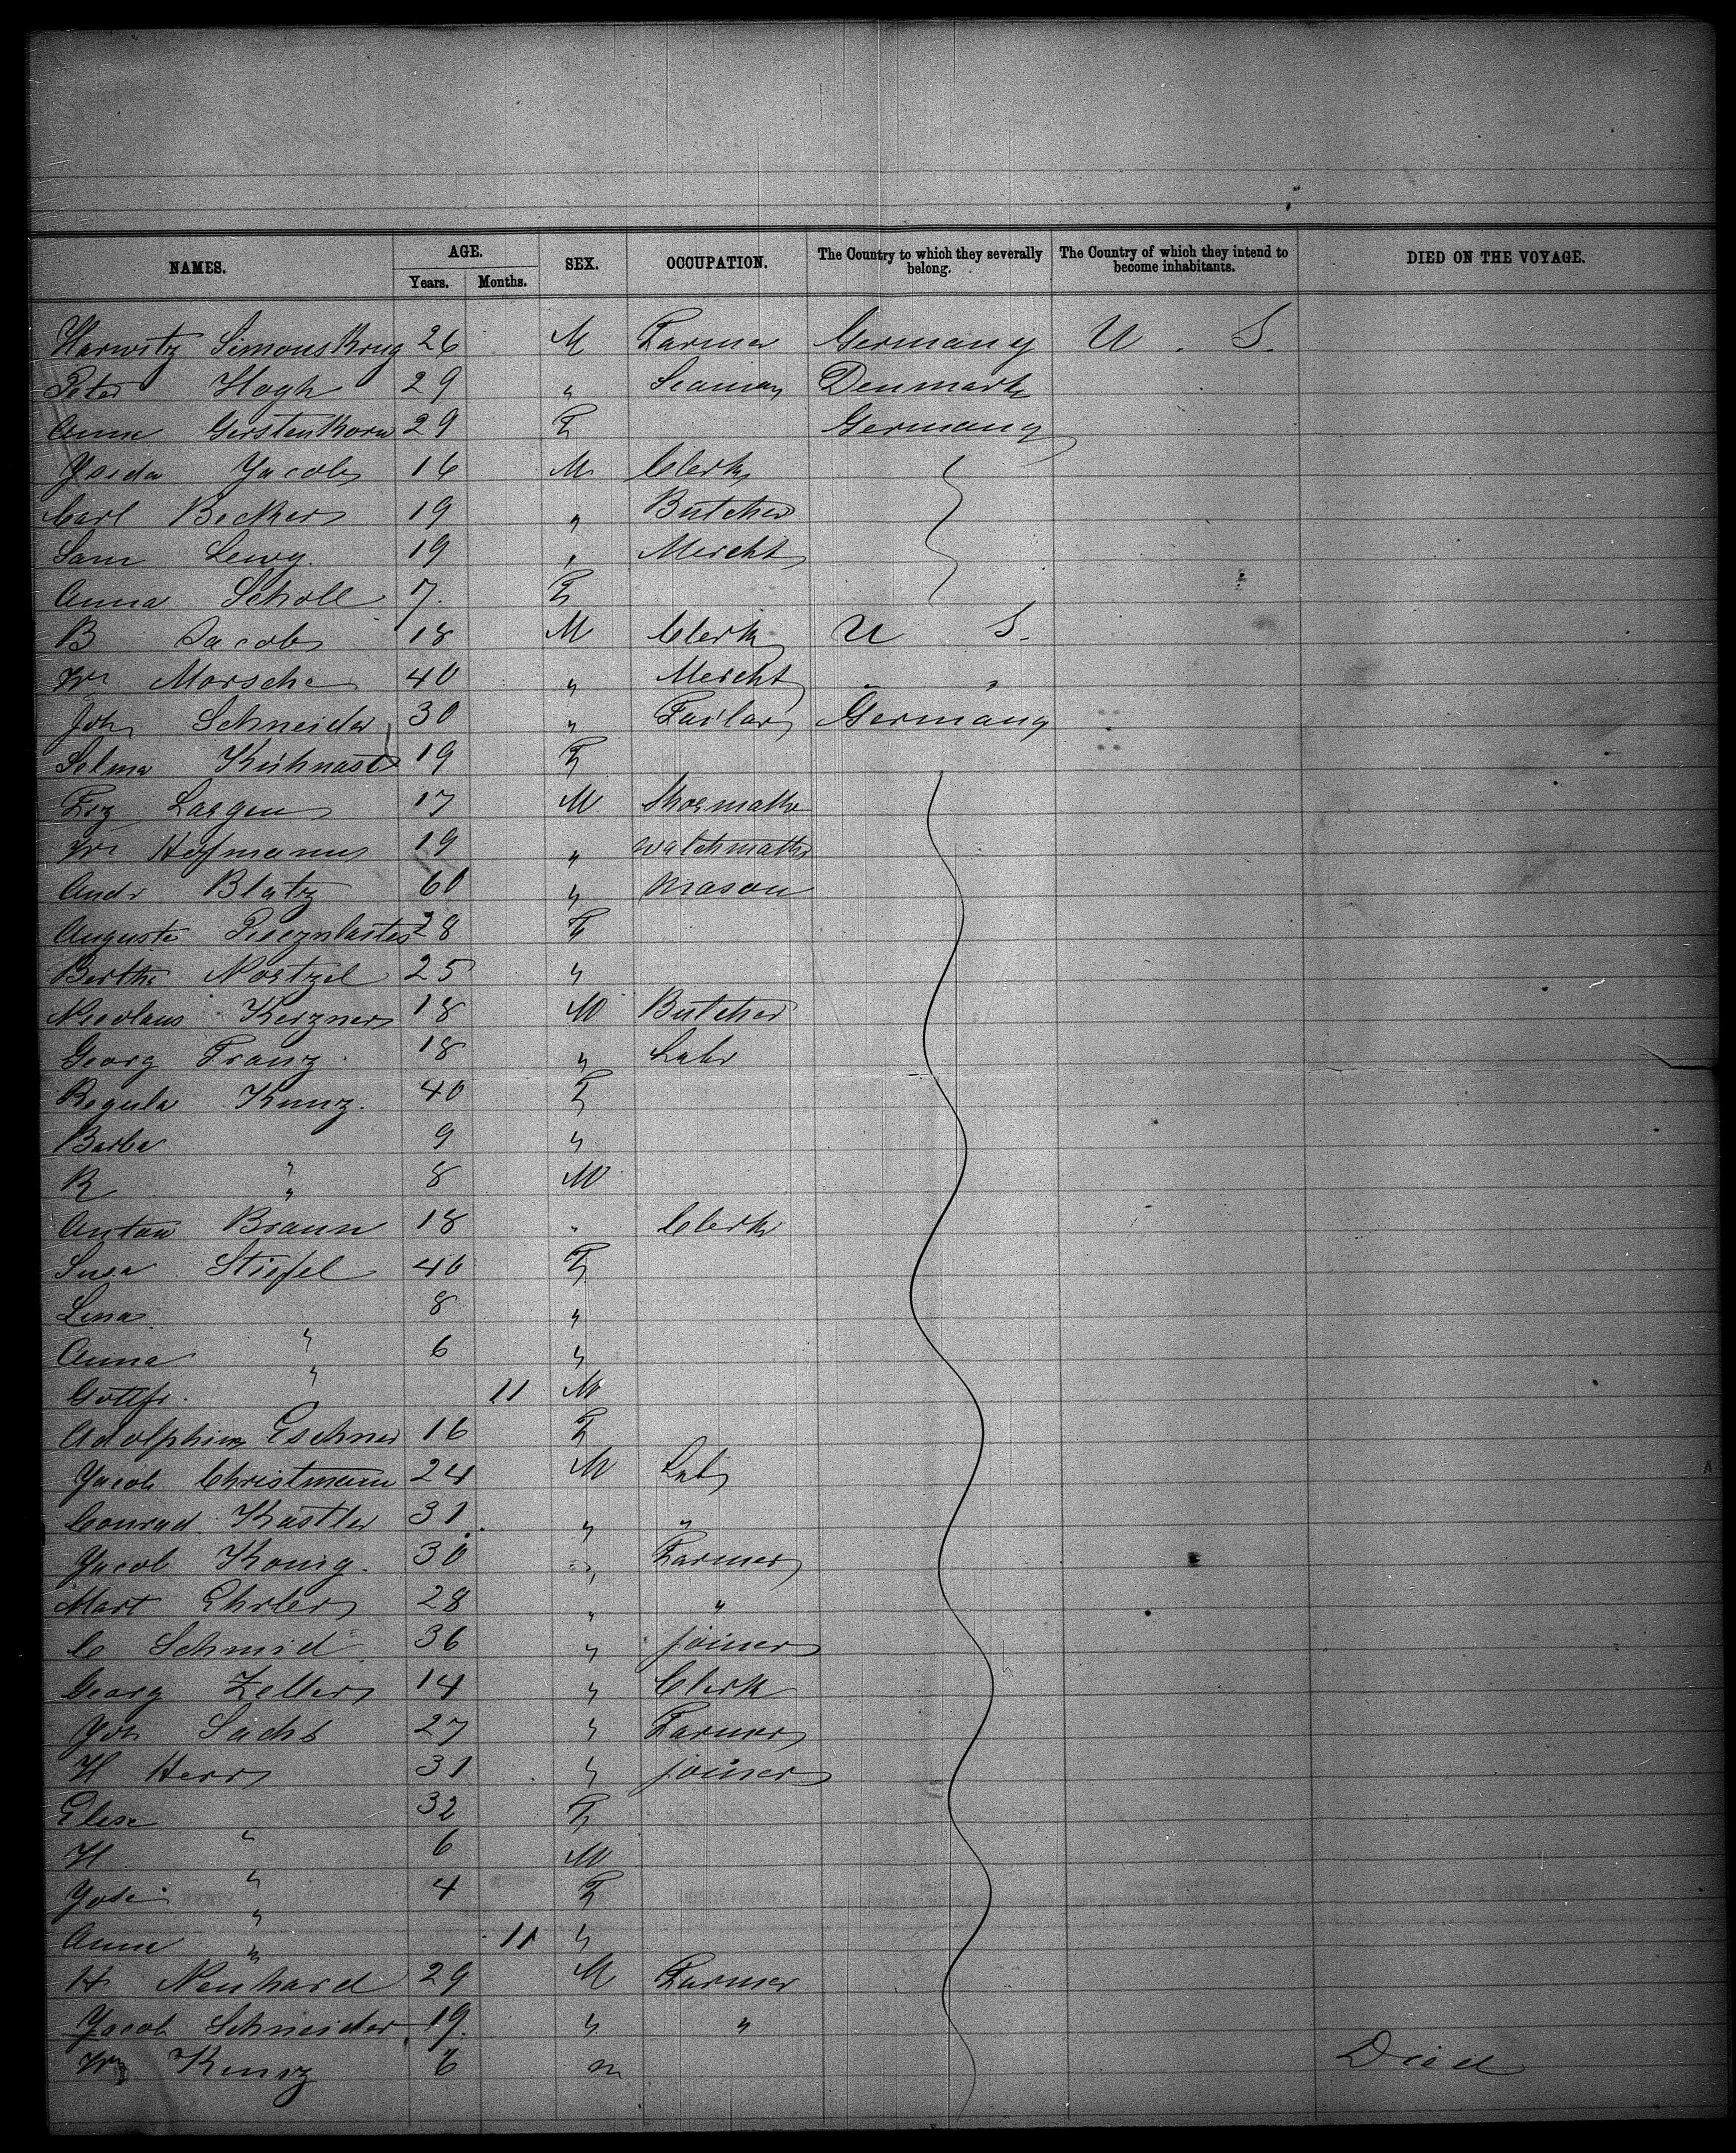 NAMES. AGE. Years. Months. SEX. OCCUPATION. The Country to which they severally belong. The Country of which they intend to become inhabitants. DIED ON THE VOYAGE.
Harwitz Simonskrug 26 M Farmer Germany U. S.
Peter Hogh 29 " Seaman Denmark
Anna Gerstenkorn 29 F Germany
Jacob 16 M Clerk
Carl Becker 19 " Butcher
Sam Levy. 19 " Mercht
Anna Scholl 7. F
B Jacob 18 M Clerk U S.
Wm Morsche 40 " Mercht " "
Joh Schneider 30 " Tailor Germany
Selma Kühnast 19 F
Frz 17 M Shoemaker
Wm Hofmann 19 " Watchmaker
Andr Blatz 60 " Mason
Auguste 28 F
Bertha Noetzel 25 "
Nicolaus 18 M Butcher
Georg Franz 18 " Labr
Regula Kunz. 40 F
Barba " 9 "
R " 8 M
Anton Braun 18 " Clerk
Susa Stiefel 40 F
Lena " 8 "
Anna " 6 "
Gottfr. " 11 M
Adolphine Eschner 16 F
Jacob Christmann 24 M Labr
Conrad Kastler 31 " "
Jacob Konig. 30 " Farmer
Mart Ehrler 28 " "
C Schmid 36 " joiner
Georg Zeller 14 " Clerk
Joh Sachs 27 " Farmer
H Herr 31 " joiner
Elise " 32 F
H " 6 M
" 4 F
Anna " 11 "
H Neuhard 29 M Farmer
Jacob Schneider 19. " "
Wm Kunz 6 m Died